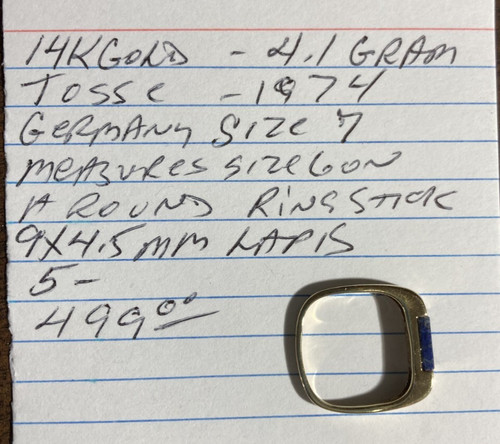 14K GOLD - 4.1 GRAM
TOSSE - 1974
GERMANY SIZE 7
MEASURES SIZE 6 ON
A ROUND RING STICK
9X4.5 MM LAPIS
5-
499.00